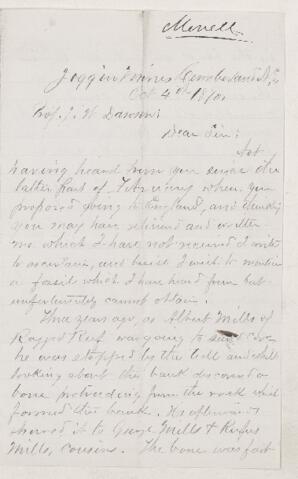 Morell
Joggin Mines Cumberland N.S.
Oct 4th 1870.
Prof. J. W. Dawson;
Dear Sir;
Not
having heard from you since the
latter part of February when you
proposed going to England, and thinking
you may have returned and written
me which I have not received I write
to ascertain, and beside I wish to mention
a fossil which I have heard from but
unfortunately cannot obtain.
Three years ago, as Albert Mills of
Ragged Reef was going to
he was stopped by the tide and while
looking about the bank discovered a
bone protruding from the rock which
formed the bank. He afterwards
showed it to George Mills & Rufus
Mills, cousins. The bone was fast